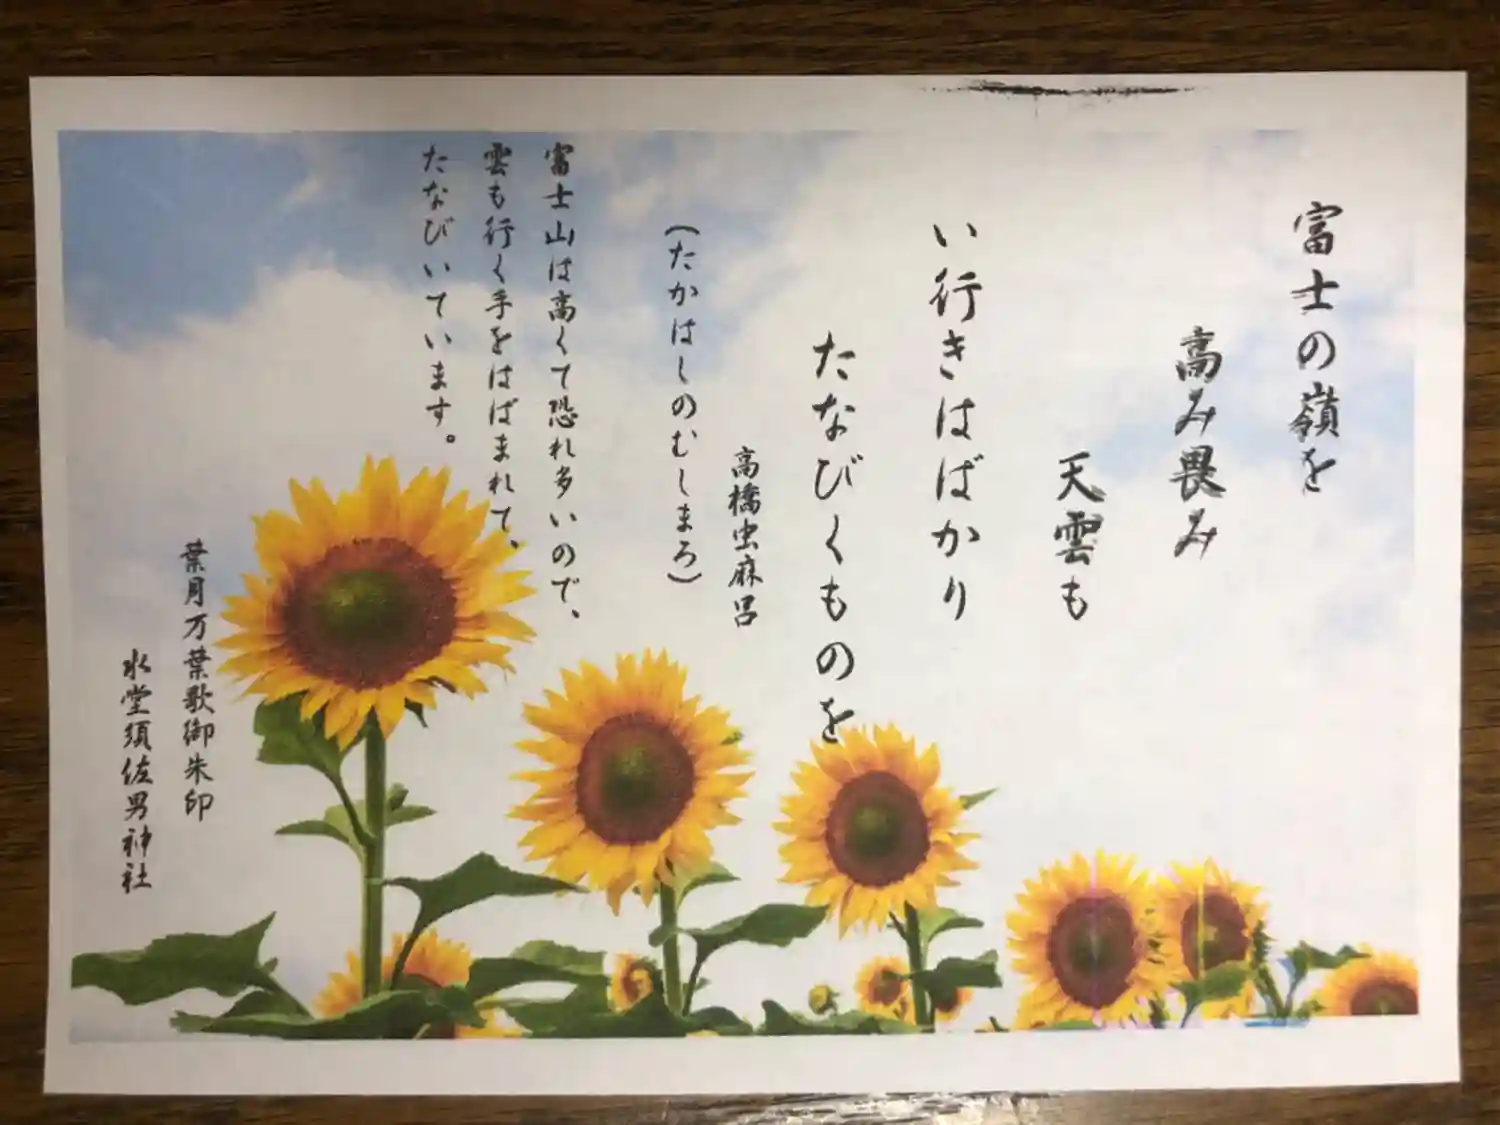 富士の嶺を
高み畏み
天雲も
い行きはばかり
たなびくものを
高橋虫麻呂
(たかはしのむしまろ)
富士山は高くて恐れ多いので、
雲も行く手をはばまれて、
たなびいています。
葉月万葉歌御朱印
水堂須佐男神社